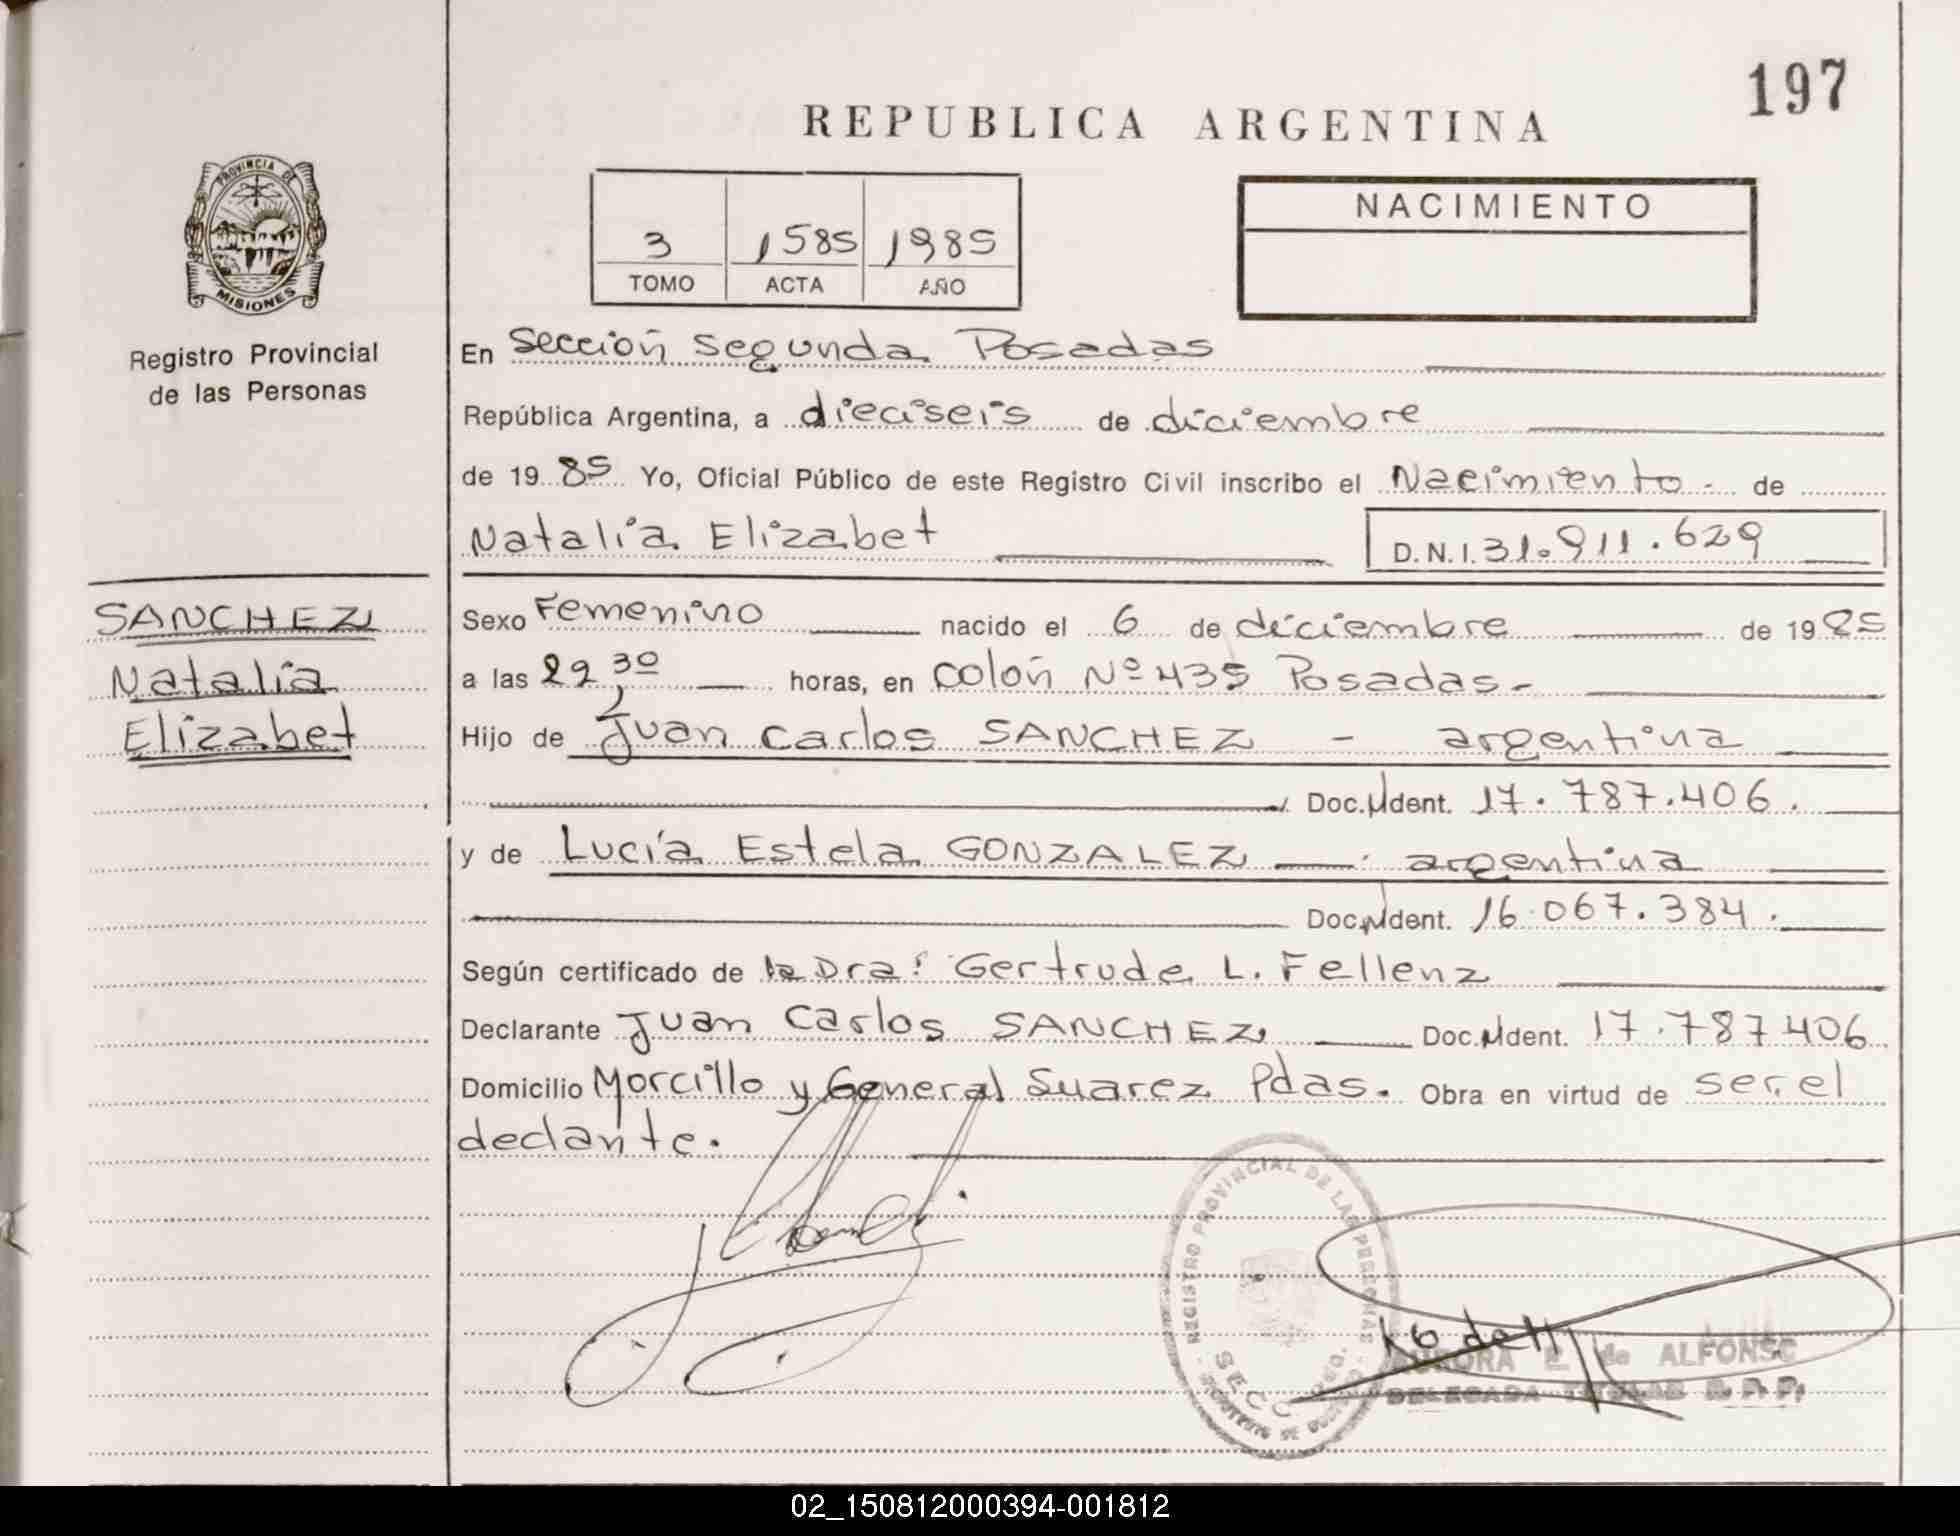 197
REPUBLICA ARGENTINA
PROVINCIA DE
MISIONES
Registro Provincial
de las Personas
3 1585 1985
TOMO ACTA AÑO
NACIMIENTO
En Sección Segunda Posadas
República Argentina, a dieciseis de diciembre
de 1985 Yo, Oficial Público de este Registro Civil inscribo el Nacimiento - de
Natalia Elizabet D.N.I. 31.911.629
SANCHEZ
Natalia
Elizabet
Sexo Femenino nacido el 6 de diciembre de 1985
a las 22,30 horas, en Colón Nº 435 Posadas-
Hijo de Juan Carlos SANCHEZ - argentina
Doc. Ident. 17.787.406.
y de Lucía Estela GONZALEZ argentina
Doc. Ident. 16.067.384.
Según certificado de la Dra: Gertrude L. Fellenz
Declarante Juan Carlos SANCHEZ Doc. Ident. 17.787406
Domicilio Morcillo y General Suarez Pdas. Obra en virtud de ser el
declante.
REGISTRO PROVINCIAL DE LAS PERSONAS
SECC.
AURORA E. de ALFONSO
DELEGADA TITULAR R. P. P.
02_150812000394-001812